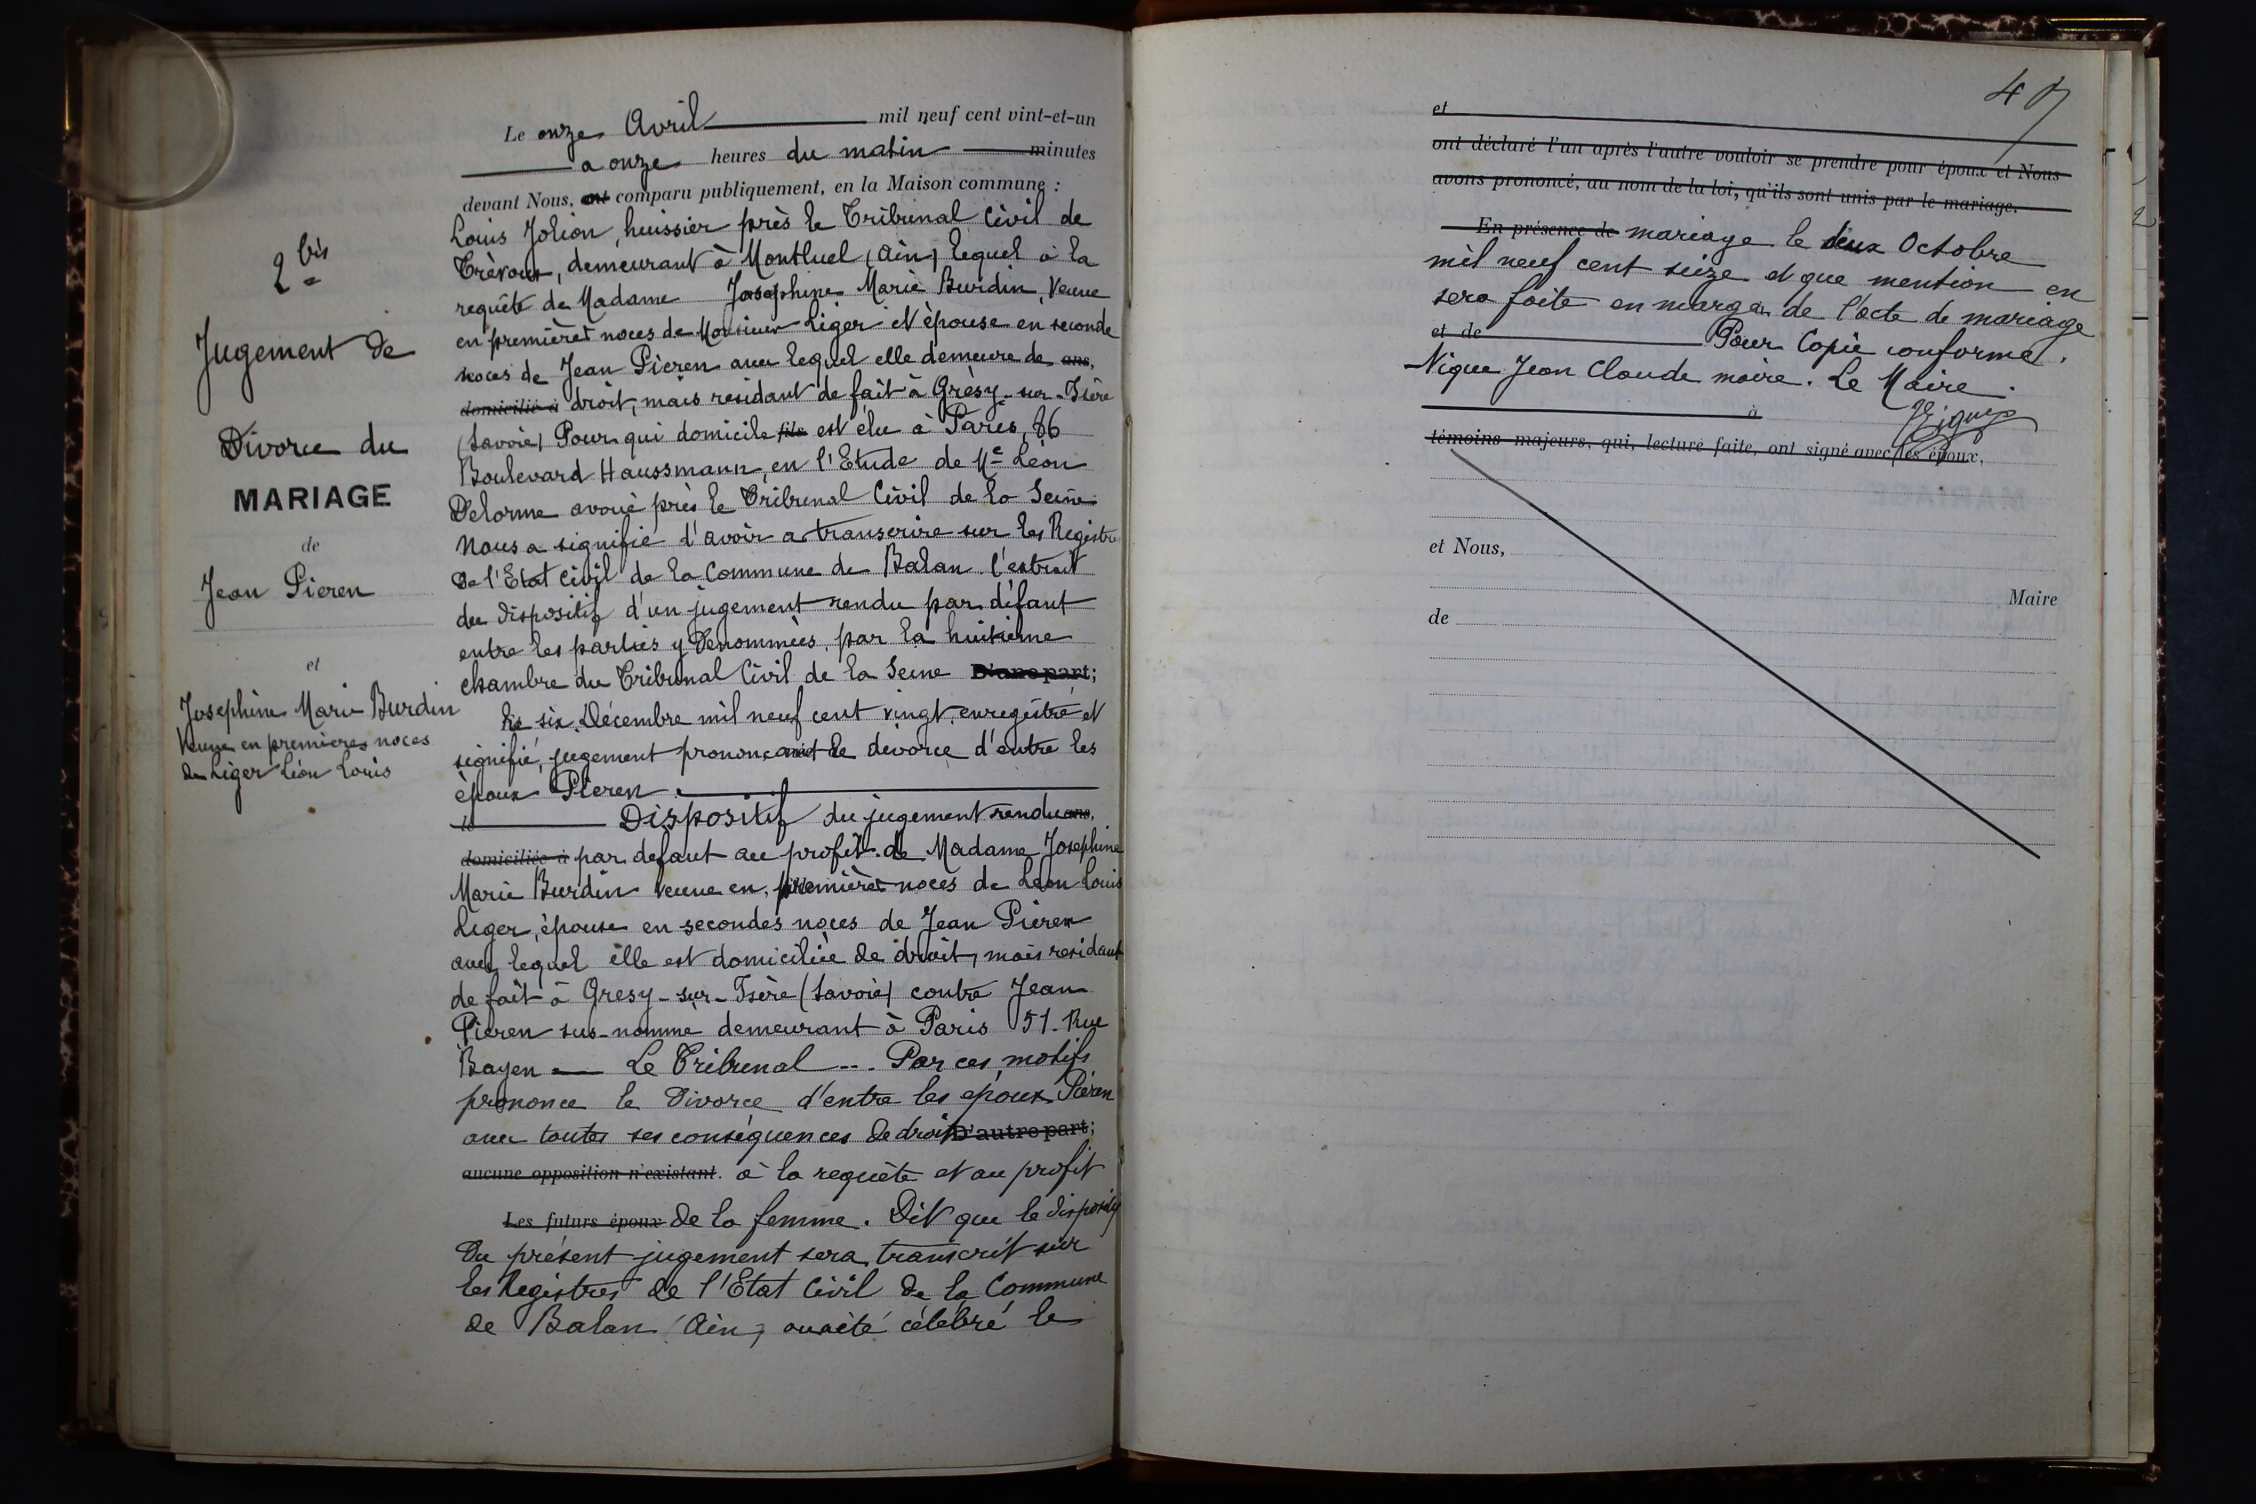 2 bis
Jugement de
Divorce du
MARIAGE
de
Jean Pieren
et
Josephine Marie Burdin
Veuve en premieres noces
de Liger Léon Louis
Le onze Avril mil neuf cent vint-et-un
a onze heures du matin minutes
devant Nous, ont comparu publiquement, en la Maison commune :
Louis Jolion, huissier près le Tribunal Civil de
Trèvoux, demeurant à Montluel (Ain) lequel à la
requête de Madame Josephine Marie Burdin, Veuve
en premières noces de Monsieur Liger et épouse en seconde
noces de Jean Pieren avec lequel elle demeure de ans,
domicilié à droit, mais residant de fait à Grèsy-sur-Isère
(Savoie) Pour qui domicile fils est élu à Paris, 86
Boulevard Haussmann, en l'Etude de Me Léon
Delorme avoué près le Tribunal Civil de la Seine
Nous a signifié d'avoir a transcrire sur les Registre
de l'Etat civil de la Commune de Balan l'extrait
du dispositif d'un jugement rendu par défaut
entre les parties y dénommées, par la huitième
chambre du Tribunal Civil de la Seine D'une part;
le six Décembre mil neuf cent vingt, enregistré et
signifié, jugement prononçant le divorce d'entre les
époux Pieren.
Dispositif du jugement rendu ans,
domiciliée à par defaut au profit de Madame Josephine
Marie Burdin veuve en premières noces de Léon Louis
Liger, épouse en secondes noces de Jean Pieren
avec lequel elle est domiciliée de droit, mais residant
de fait à Gresy-sur-Isère (Savoie) contre Jean
Pieren sus-nommé demeurant à Paris 51. Rue
Bayen — Le Tribunal ... Par ces motifs
prononce le Divorce d'entre les époux Pieren
avec toutes ses conséquences de droit D'autre part;
aucune opposition n'existant. à la requête et au profit
Les futurs époux de la femme. Dit que le dispositif
du présent jugement sera transcrit sur
les Registres de l'Etat Civil de la Commune
de Balan (Ain) ou a été célébré le
et
ont déclaré l'un après l'autre vouloir se prendre pour époux et Nous
avons prononcé, au nom de la loi, qu'ils sont unis par le mariage.
En présence de mariage le deux Octobre
mil neuf cent seize et que mention en
sera faite en marge de l'acte de mariage
et de Pour Copie conforme.
Nique Jean Claude maire. Le Maire.
à Nique
témoins majeurs, qui, lecture faite, ont signé avec les époux,
et Nous,
Maire
de